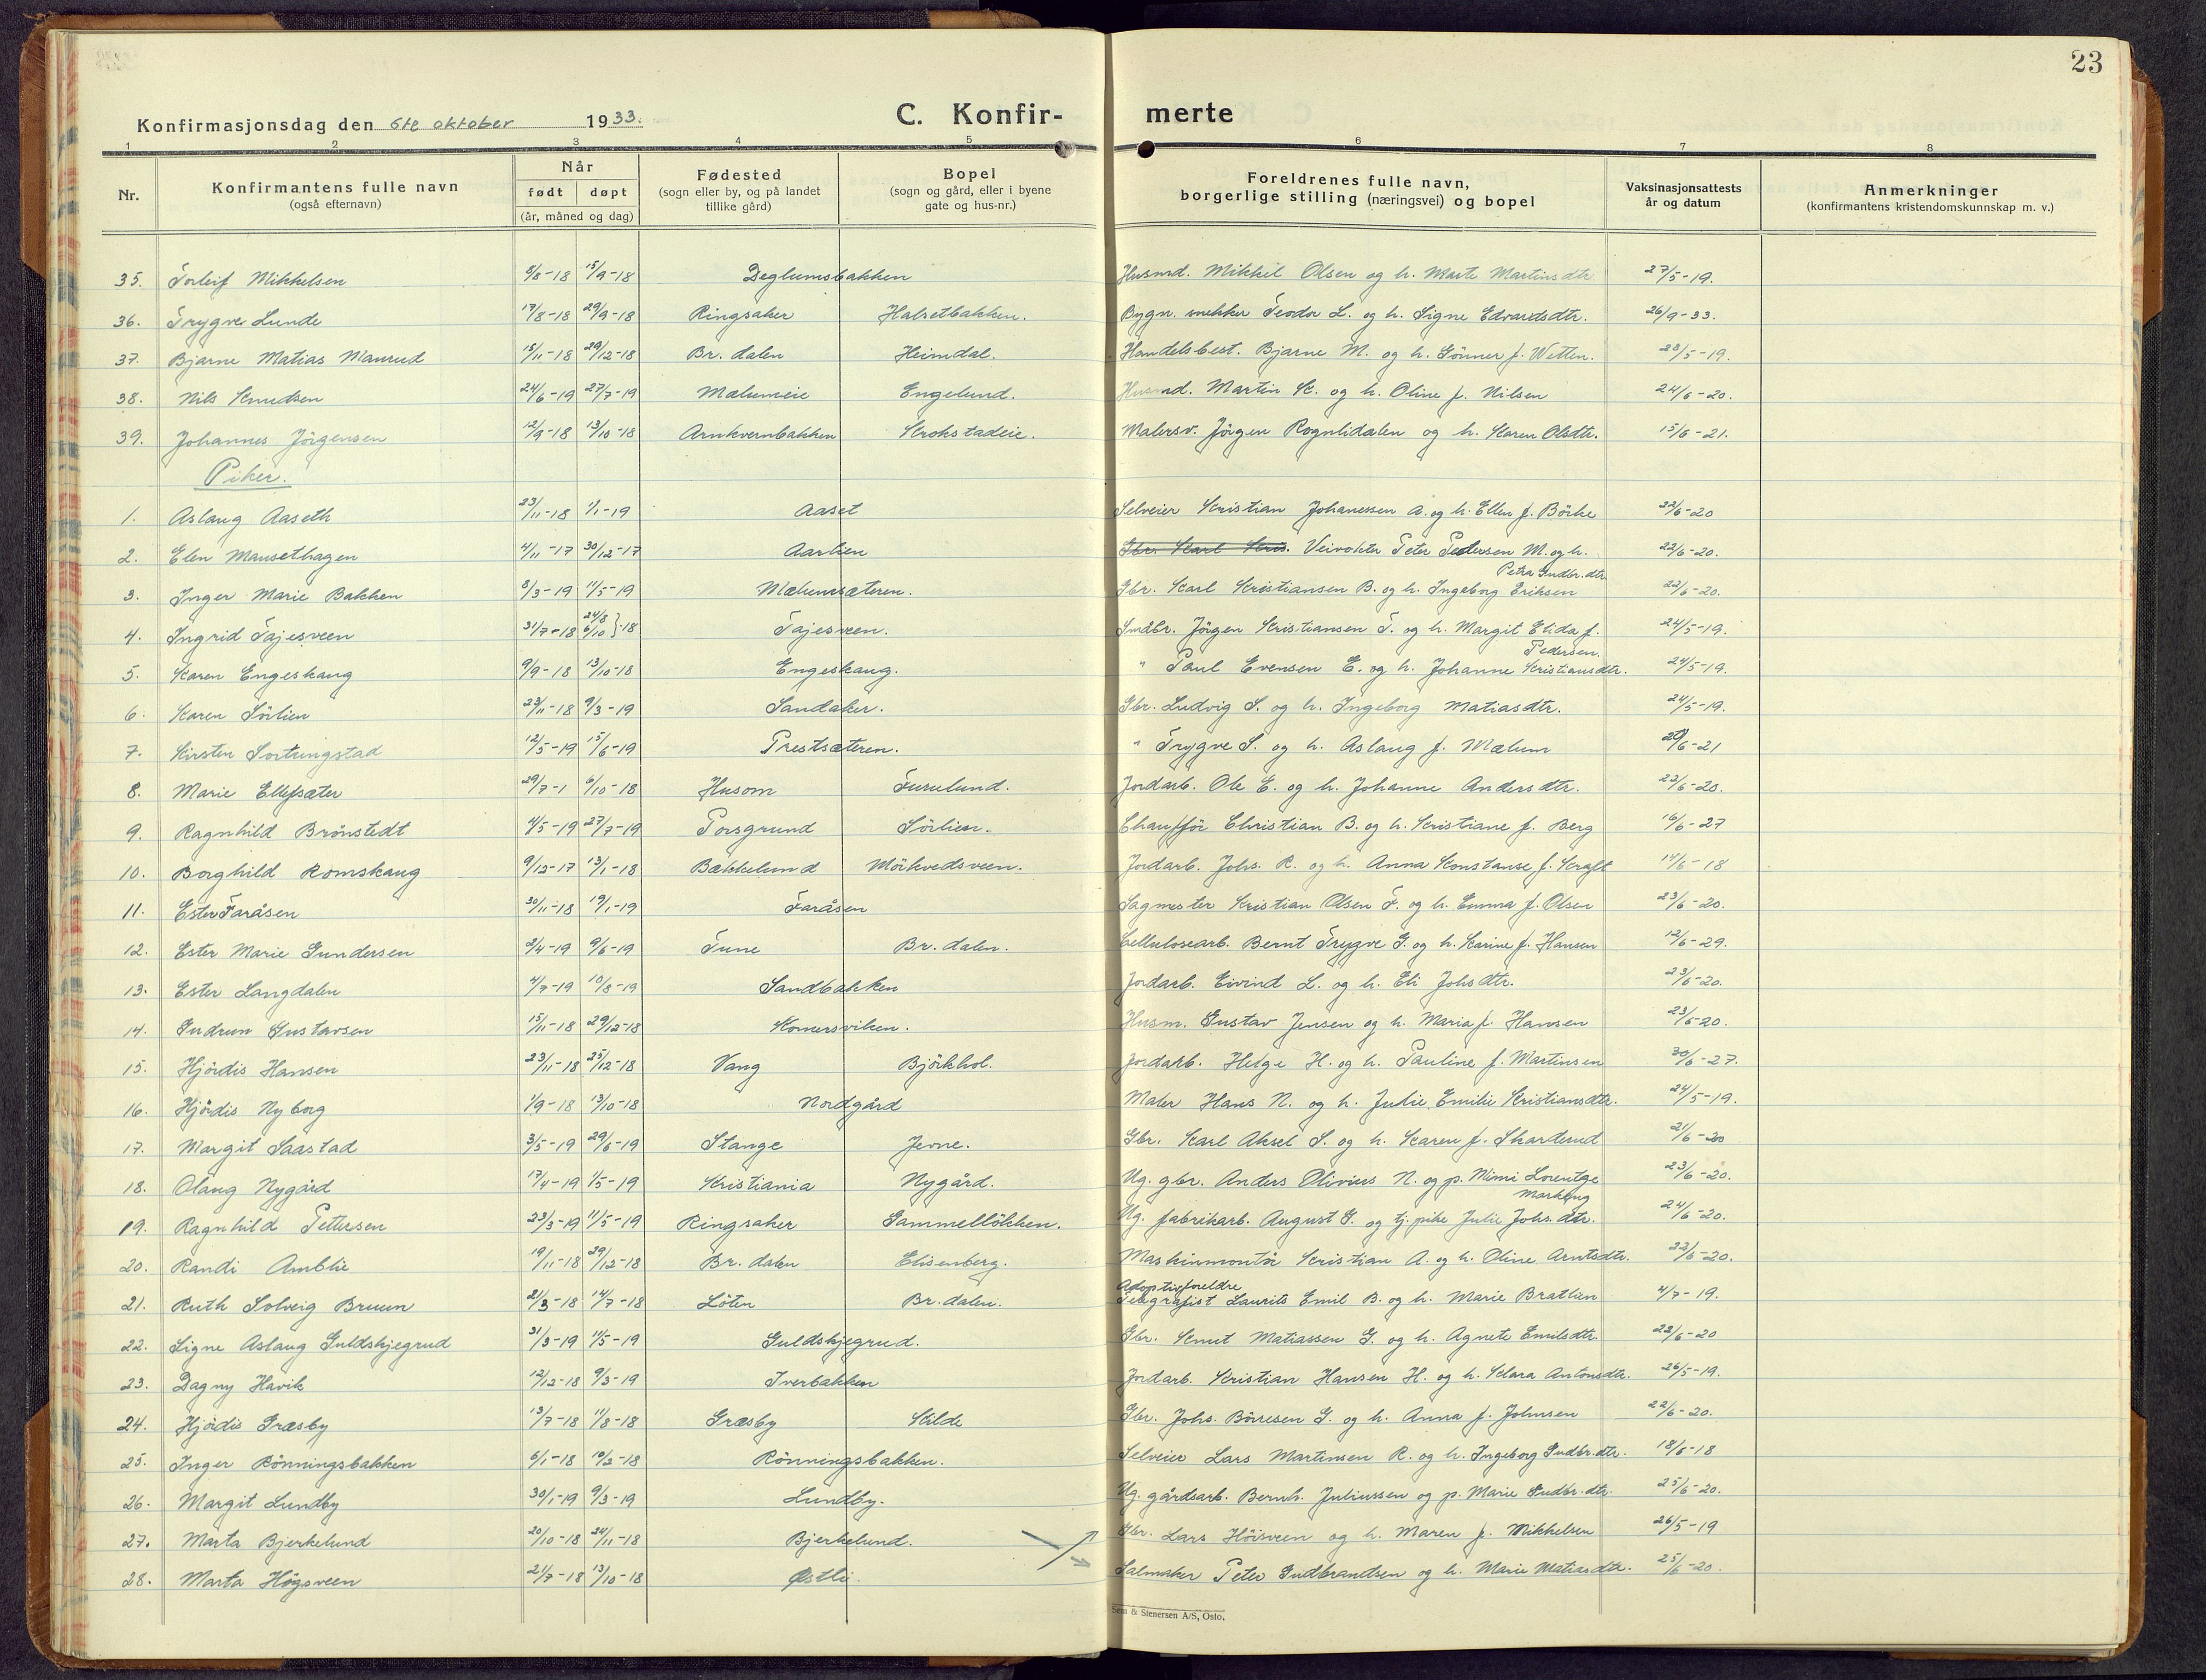 23
Konfirmasjonsdag den 6te oktober 1933.
C. Konfir-
merte
1 2 3 4 5 6 7 8
Nr. Konfirmantens fulle navn (også efternavn) Når født døpt (år, måned og dag) Fødested (sogn eller by, og på landet tillike gård) Bopel (sogn og gård, eller i byene gate og hus-nr.) Foreldrenes fulle navn, borgerlige stilling (næringsvei) og bopel Vaksinasjonsattests år og datum Anmerkninger (konfirmantens kristendomskunnskap m. v.)
35. Torleif Mikkelsen 8/8-18 15/9-18 Deglumsbakken Husmd. Mikkel Olsen og h. Marte Martinsdtr 27/5-19.
36. Trygve Lunde 17/8-18 29/9-18 Ringsaker Halsetbakken. Bygn. snekker Teodor L. og h. Signe Edvardsdtr. 26/9-33.
37. Bjarne Matias Maurud 15/11-18 29/12-18 Br. dalen Heimdal. Handelsbest. Bjarne M. og h. Gönner f. Wetten. 23/5-19.
38. Nils Knudsen 24/6-19 27/7-19 Mælumeie Engelund. Husmd. Martin K. og h. Oline f. Nilsen 24/6-20.
39. Johannes Jörgensen 12/9-18 13/10-18 Arnkvernbakken Krokstadeie. Malersv. Jörgen Rognlidalen og h. Karen Olsdtr. 15/6-21.
Piker.
1. Aslaug Aaseth 23/11-18 1/1-19 Aaset Selveier Kristian Johanessen A. og h. Ellen f. Börke 22/6-20
2. Elen Mausethagen 4/11-17 30/12-17 Aarlien Gbr. Karl Kris. Veivokter Peter Pedersen M. og h. Petra Gudbr.dtr 22/6-20.
3. Inger Marie Bakken 8/3-19 11/5-19 Mælumsæteren. Gbr. Karl Kristiansen B. og h. Ingeborg Eriksen 22/6-20.
4. Ingrid Tajesveen 31/7-18 24/8 6/10 }-18 Tajesveen. Smdbr. Jörgen Kristiansen T. og h. Margit Elida f. Pedersen. 24/5-19.
5. Karen Engeskaug 9/9-18 13/10-18 Engeskaug. " Paul Evensen E. og h. Johanne Kristiansdtr. 24/5-19.
6. Karen Sörlien 23/11-18 9/3-19 Sandaker. Gbr. Ludvig S. og h. Ingeborg Matiasdtr. 24/5-19.
7. Kirsten Sortungstad 12/5-19 15/6-19 Prestsæteren. " Trygve S. og h. Aslaug f. Mælum 20/6-21
8. Marie Ellefsæter 29/7-1 6/10-18 Husom Furulund. Jordarb. Ole E. og h. Johanne Andersdtr. 23/6-20.
9. Ragnhild Brönstedt 4/5-19 27/7-19 Porsgrund Sörlien. Chauffför Christian B. og h. Kristiane f. Berg 16/6-27
10. Borghild Romskaug 9/12-17 13/1-18 Bækkelund Mörkvedsveen. Jordarb. Johs. R. og h. Anna Konstanse f. Kraft 14/6-18
11. Ester Faråsen 30/11-18 19/1-19 Faråsen Sagmester Kristian Olsen F. og h. Emma f. Olsen 23/6-20.
12. Ester Marie Gundersen 2/4-19 9/6-19 Tune Br. dalen. Cellulosearb. Bernt Trygve G. og h. Karine f. Hansen 12/6-29.
13. Ester Langdalen 4/7-19 10/8-19 Sandbakken Jordarb. Eivind L. og h. Eli Johsdtr. 23/6-20.
14. Gudrun Gustavsen 15/11-18 29/12-18 Komersviken. Husm. Gustav Jensen og h. Maria f. Hansen 23/6-20.
15. Hjördis Hansen 23/11-18 25/12-18 Vang Björkhol. Jordarb. Helge H. og h. Pauline f. Martinsen 30/6-27.
16. Hjördis Nyborg 1/9-18 13/10-18 Nordgård Maler Hans N. og h. Julie Emilie Kristiansdtr. 24/5-19.
17. Margit Saastad 3/5-19 29/6-19 Stange Jevne. Gbr. Karl Aksel S. og h. Karen f. Skarderud 21/6-20
18. Olaug Nygård 17/4-19 1/5-19 Kristiania Nygård. Ug. gbr. Anders Olivius N. og p. Mimi Lorentze Markeng 23/6-20.
19. Ragnhild Pettersen 23/3-19 11/5-19 Ringsaker Gammellökken. Ug. fabrikarb. August G. og tj. pike Julie Johs.dtr. 24/6-20.
20. Randi Amblie 19/11-18 29/12-18 Br. dalen Elisenberg. Maskinmontör Kristian A. og h. Oline Arntsdtr. 22/6-20.
21. Ruth Solveig Bruun 21/3-18 14/7-18 Löten Br. dalen. Adoptivforeldre Telegrafist Laurits Emil B. og h. Marie Brathen 4/7-19.
22. Signe Aslaug Guldskjegrud 31/3-19 11/5-19 Guldskjegrud. Gbr. Knut Matiassen G. og h. Agnete Emilsdtr. 22/6-20
23. Dagny Havik 12/12-18 9/3-19 Iverbakken Jordarb. Kristian Hansen H. og h. Klara Antonsdtr. 26/5-19.
24. Hjördis Græsby 13/7-18 11/8-18 Græsby Kilde Gbr. Johs. Börresen G. og h. Anna f. Johnsen 22/6-20.
25. Inger Rönningsbakken 6/1-18 10/2-18 Rönningsbakken. Selveier Lars Martinsen R. og h. Ingeborg Gudbr.dtr. 18/6-18
26. Margit Lundby 30/1-19 9/3-19 Lundby. Ug. gårdsarb. Bernh. Juliussen og p. Marie Gudbr.dtr. 25/6-20.
27. Marta Bjerkelund 20/10-18 24/11-18 Bjerkelund. Gbr. Lars Höisveen og h. Maren f. Mikkelsen 26/5-19
28. Marta Högsveen 21/7-18 13/10-18 Østli. Salmaker Peter Gudbrandtsen og h. Marie Matiasdtr. 25/6-20.
Sem & Stenersen A/S, Oslo.